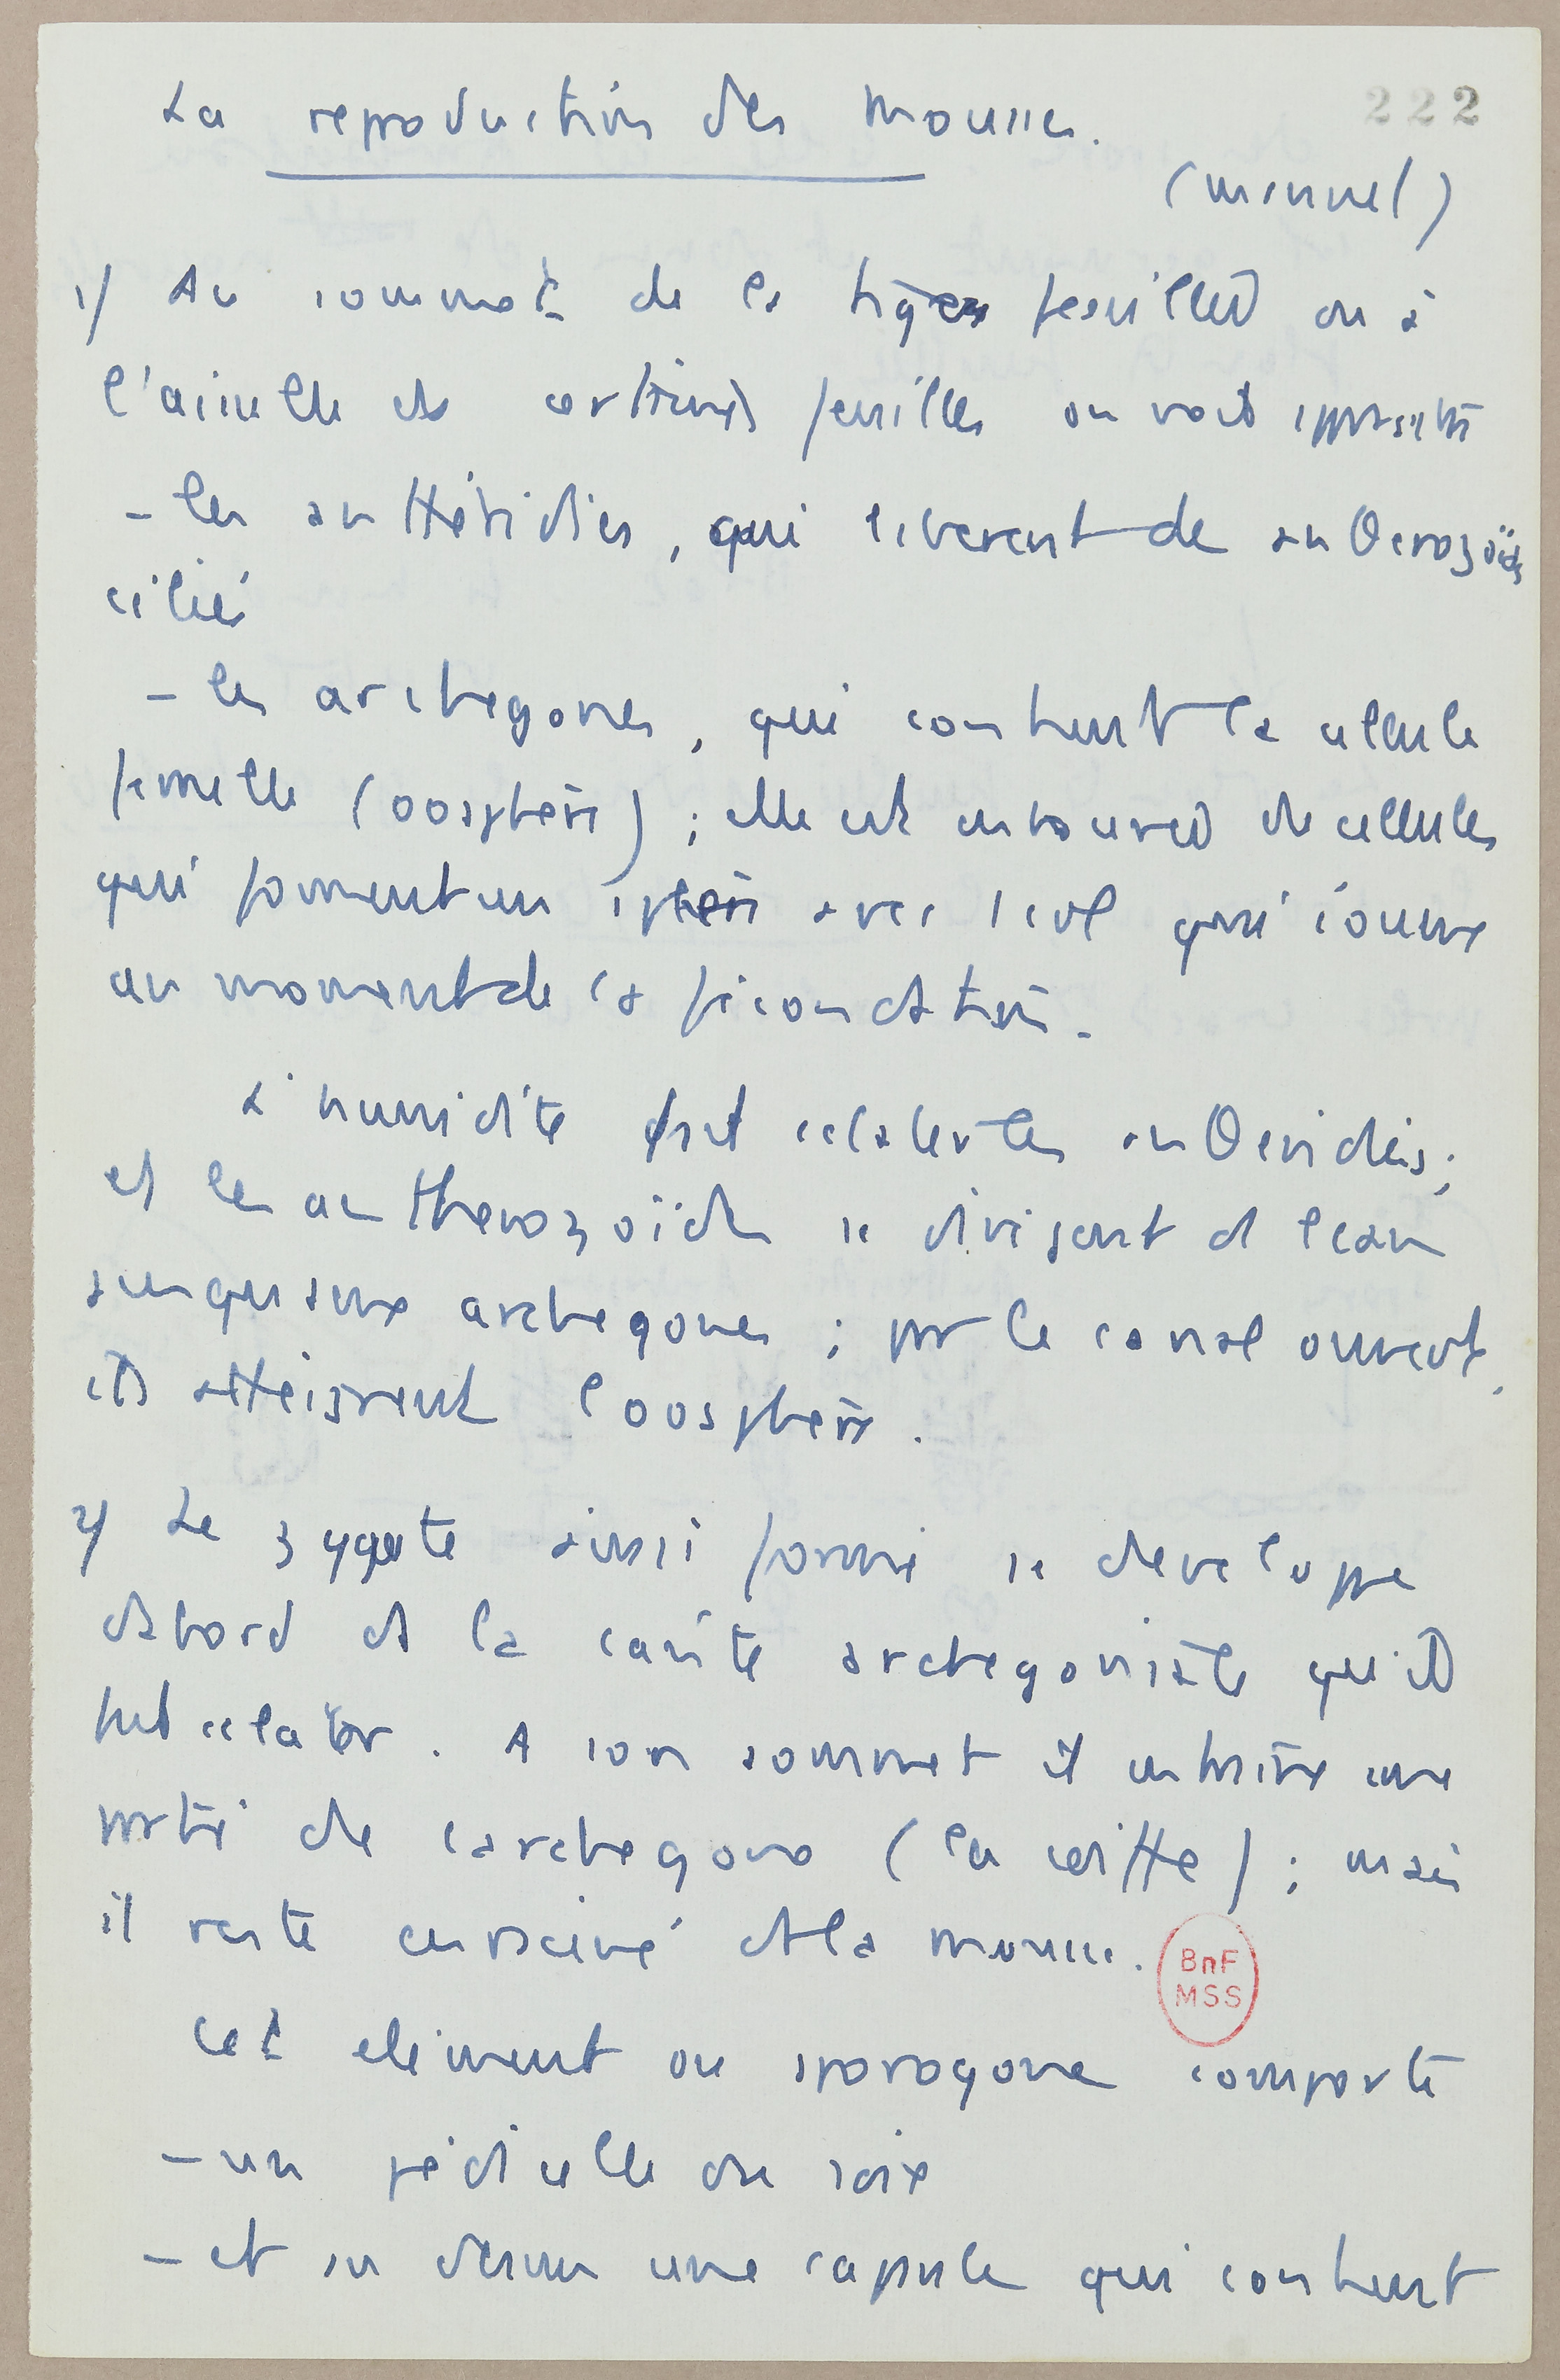 222
La reproduction des mousses.
(manuel)
1/ Au sommet de la tige feuillée ou à
l'aisselle de certaines feuilles on voit apparaître
- les anthéridies, qui libèrent de anthérozoïdes
ciliés
- les archegones, qui contient la cellule
femelle (oosphère) ; elle est entourée de cellules
qui forment un sphère avec 1 col qui s'ouvre
au moment de la fécondation.
L'humidité fait éclater les anthéridies ;
et les antherozoïdes se dirigent ds l'eau
jusqu'aux archegones ; par le canal ouvert,
ils atteignent l'oosphère.
2/ Le zygote ainsi formé se developpe
dabord ds la cavité archegoniale qu'il
fait eclater. A son sommet il entraîne une
partie de l'archegone (la coiffe) ; mais
il reste enraciné ds la mousse.
BnF
MSS
Cet element ou sporogone comporte
- un pédicelle ou soie
- et au dessus une capsule qui contient